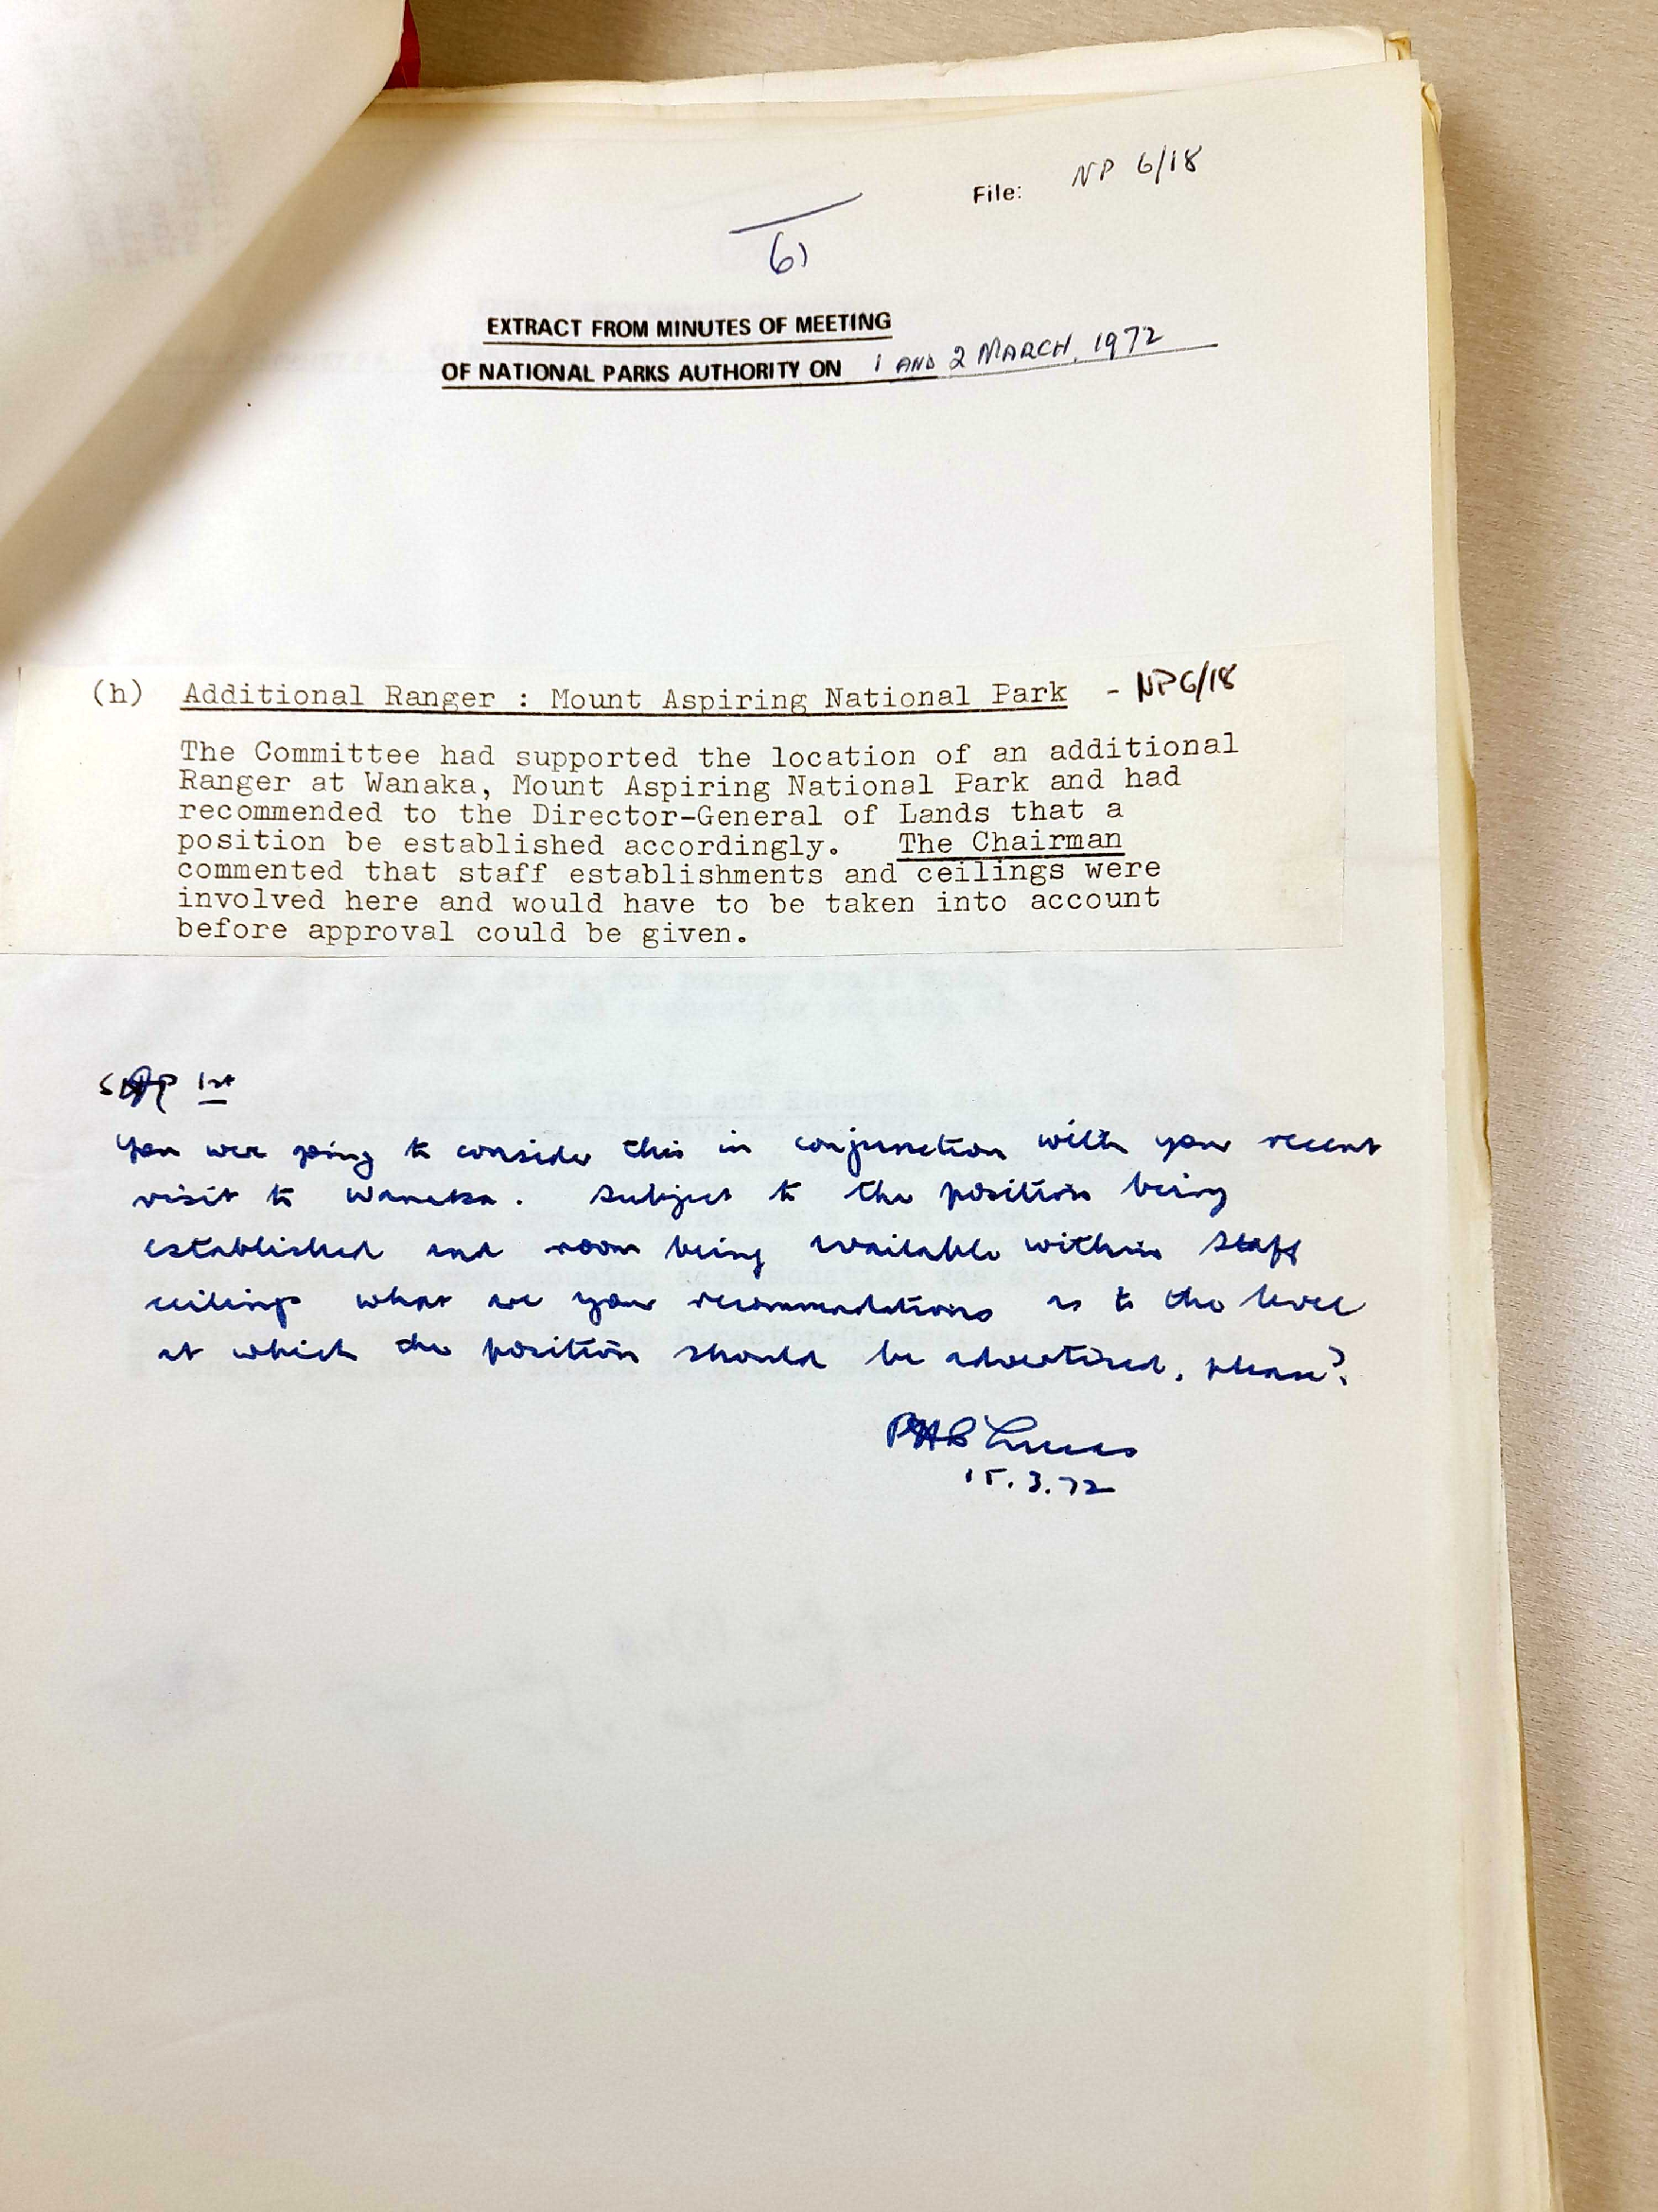 File: NP 6/18
61
EXTRACT FROM MINUTES OF MEETING
OF NATIONAL PARKS AUTHORITY ON 1 AND 2 MARCH, 1972
(h) Additional Ranger : Mount Aspiring National Park - NP6/18
The Committee had supported the location of an additional
Ranger at Wanaka, Mount Aspiring National Park and had
recommended to the Director-General of Lands that a
position be established accordingly. The Chairman
commented that staff establishments and ceilings were
involved here and would have to be taken into account
before approval could be given.
1st
You were going to consider this in conjunction with your recent
visit to Wanaka. Subject to the position being
established and room being available within staff
ceilings what are your recommendations as to the level
at which the position should be advertised, please?
PHB Lucas
15.3.72